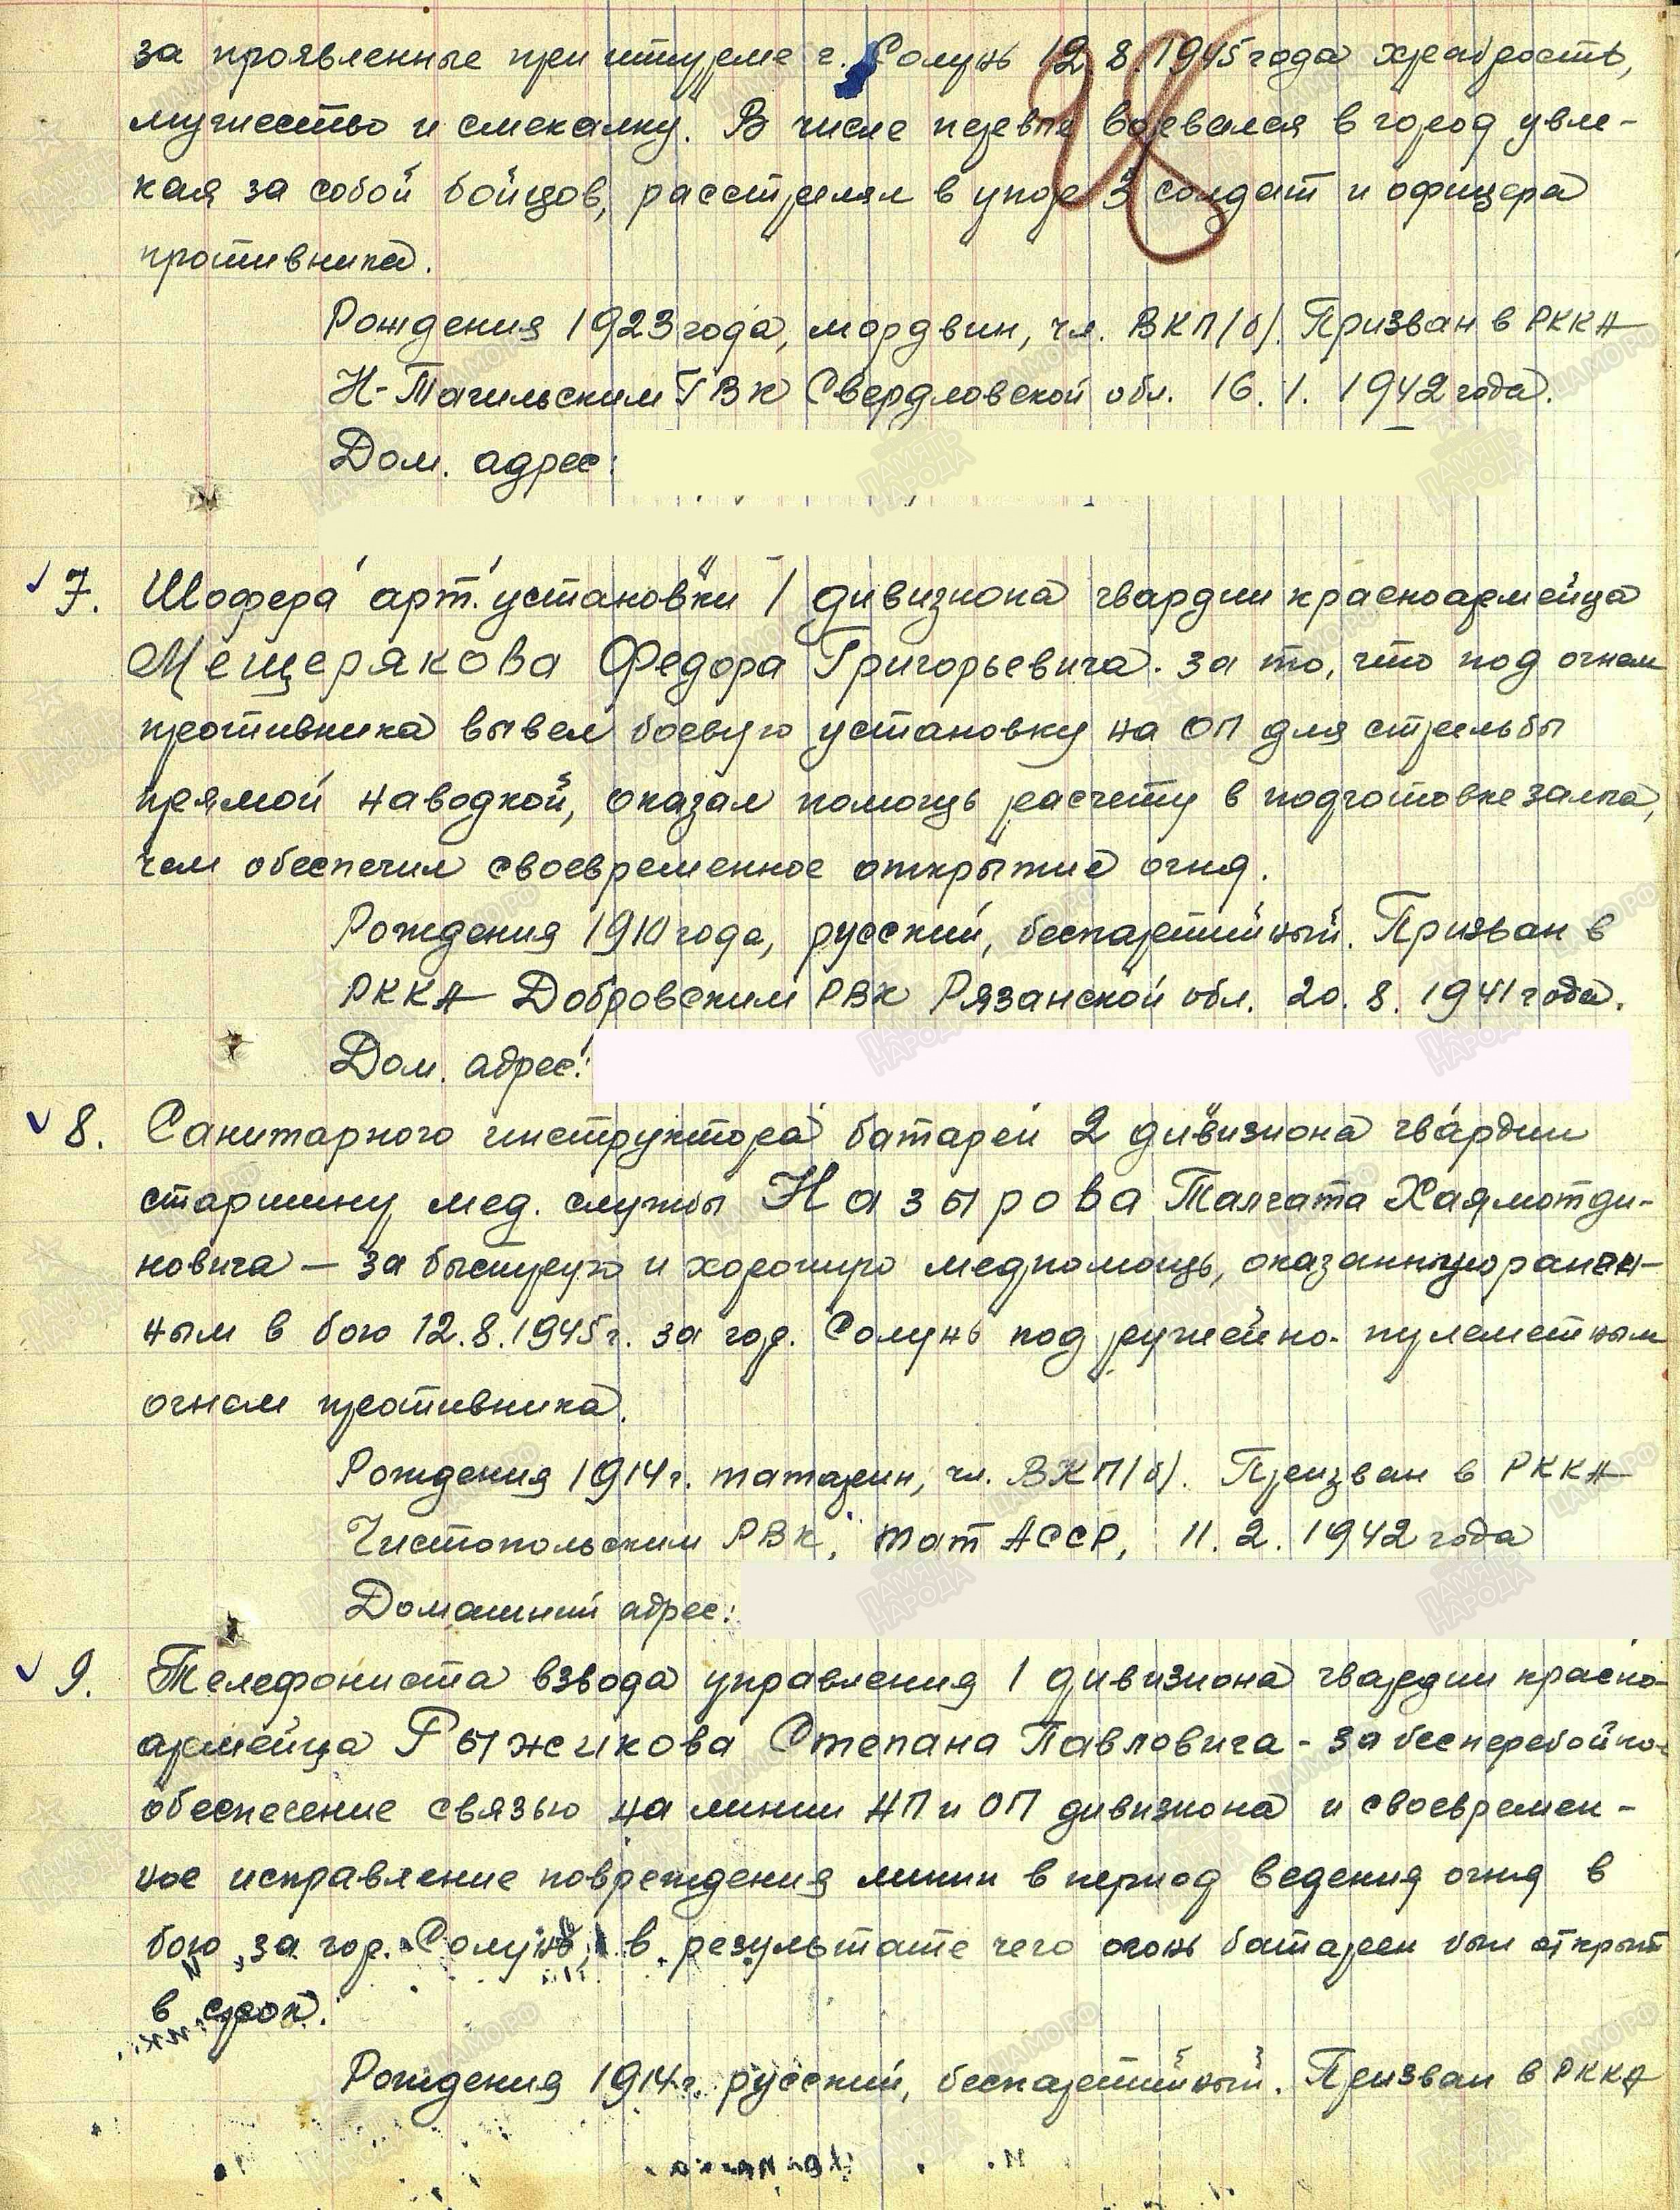 за проявленные при штурме г. Солунь 12.8.1945 года храбрость,
мужество и смекалку. В числе первых ворвался в город увле-
кая за собой бойцов, расстрелял в упор 3 солдат и офицера
противника.
28
Рождения 1923 года, мордвин, чл. ВКП/б/. Призван в РККА
Н-Тагильским ГВК Свердловской обл. 16.1.1942 года.
Дом. адрес:
7. Шофера арт. установки 1 дивизиона гвардии красноармейца
Мещерякова Федора Григорьевича. за то, что под огнем
противника вывел боевую установку на ОП для стрельбы
прямой наводкой, оказал помощь расчету в подготовке залпа,
чем обеспечил своевременное открытие огня.
Рождения 1910 года, русский, беспартийный. Призван в
РККА Добровским РВК Рязанской обл. 20.8.1941 года.
Дом. адрес:
8. Санитарного инструктора батареи 2 дивизиона гвардии
старшину мед. службы Назырова Талгата Хаямотди-
новича — за быструю и хорошую медпомощь, оказанную ранен-
ным в бою 12.8.1945 г. за гор. Солунь под ружейно-пулеметным
огнем противника.
Рождения 1914 г. татарин, чл. ВКП/б/. Призван в РККА
Чистопольским РВК, Тат АССР, 11.2.1942 года
Домашний адрес:
9. Телефониста взвода управления 1 дивизиона гвардии красно-
армейца Рыжикова Степана Павловича - за бесперебойное
обеспечение связью на линии НП и ОП дивизиона и своевремен-
ное исправление повреждения линии в период ведения огня в
бою за гор. Солунь, в результате чего огонь батареи был открыт
в срок.
Рождения 1914 г. русский, беспартийный. Призван в РККА
ПАМЯТЬ НАРОДА
ЦАМО РФ